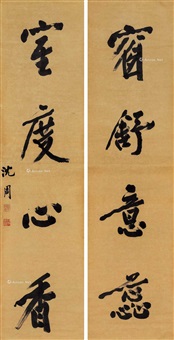 窗舒意蕊
室度心香
沈周